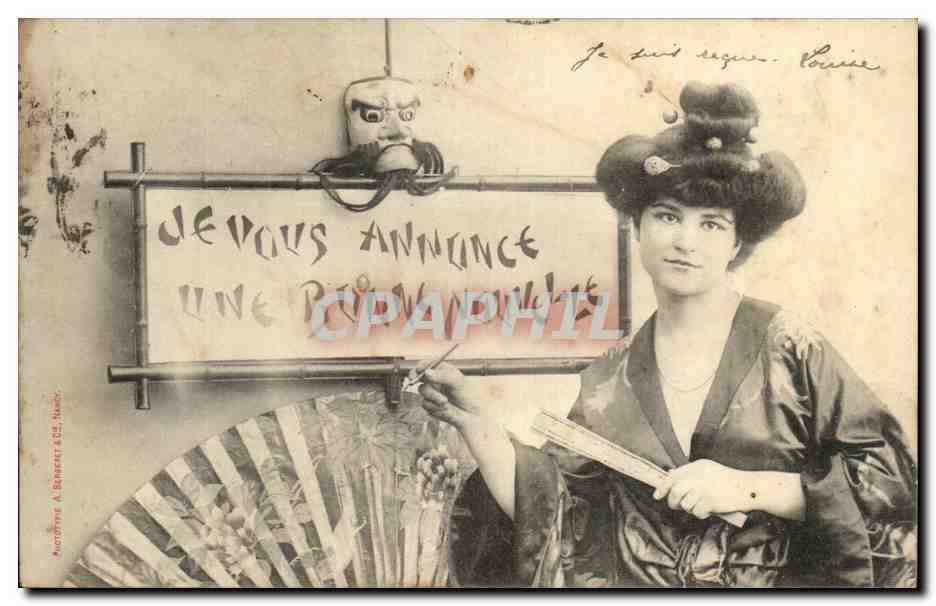 Je suis reçue. Louise
JE VOUS ANNONCE
UNE BONNE NOUVELLE
CPAPHIL
PHOTOTYPIE A. BERGERET & Cie, NANCY.